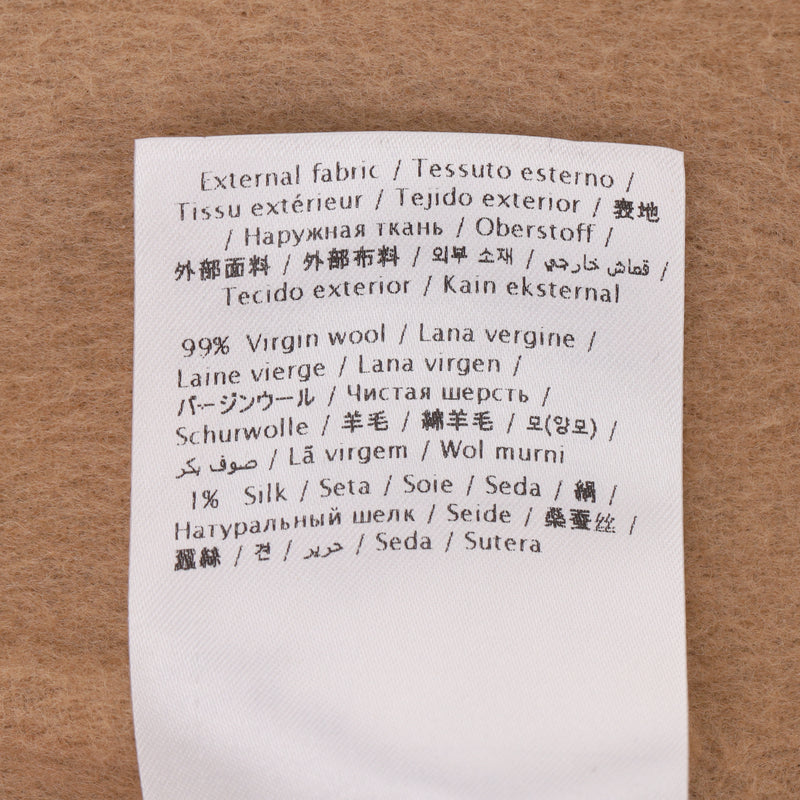 External fabric / Tessuto esterno /
Tissu extérieur / Tejido exterior / 表地
/ Наружная ткань / Oberstoff /
外部面料 / 外部布料 / 외부 소재 / قماش خارجي /
Tecido exterior / Kain eksternal
99% Virgin wool / Lana vergine /
Laine vierge / Lana virgen /
バージンウール / Чистая шерсть /
Schurwolle / 羊毛 / 綿羊毛 / 모(양모) /
صوف بكر / Lã virgem / Wol murni
1% Silk / Seta / Soie / Seda / 絹 /
Натуральный шелк / Seide / 桑蚕丝 /
蠶絲 / 견 / حرير / Seda / Sutera